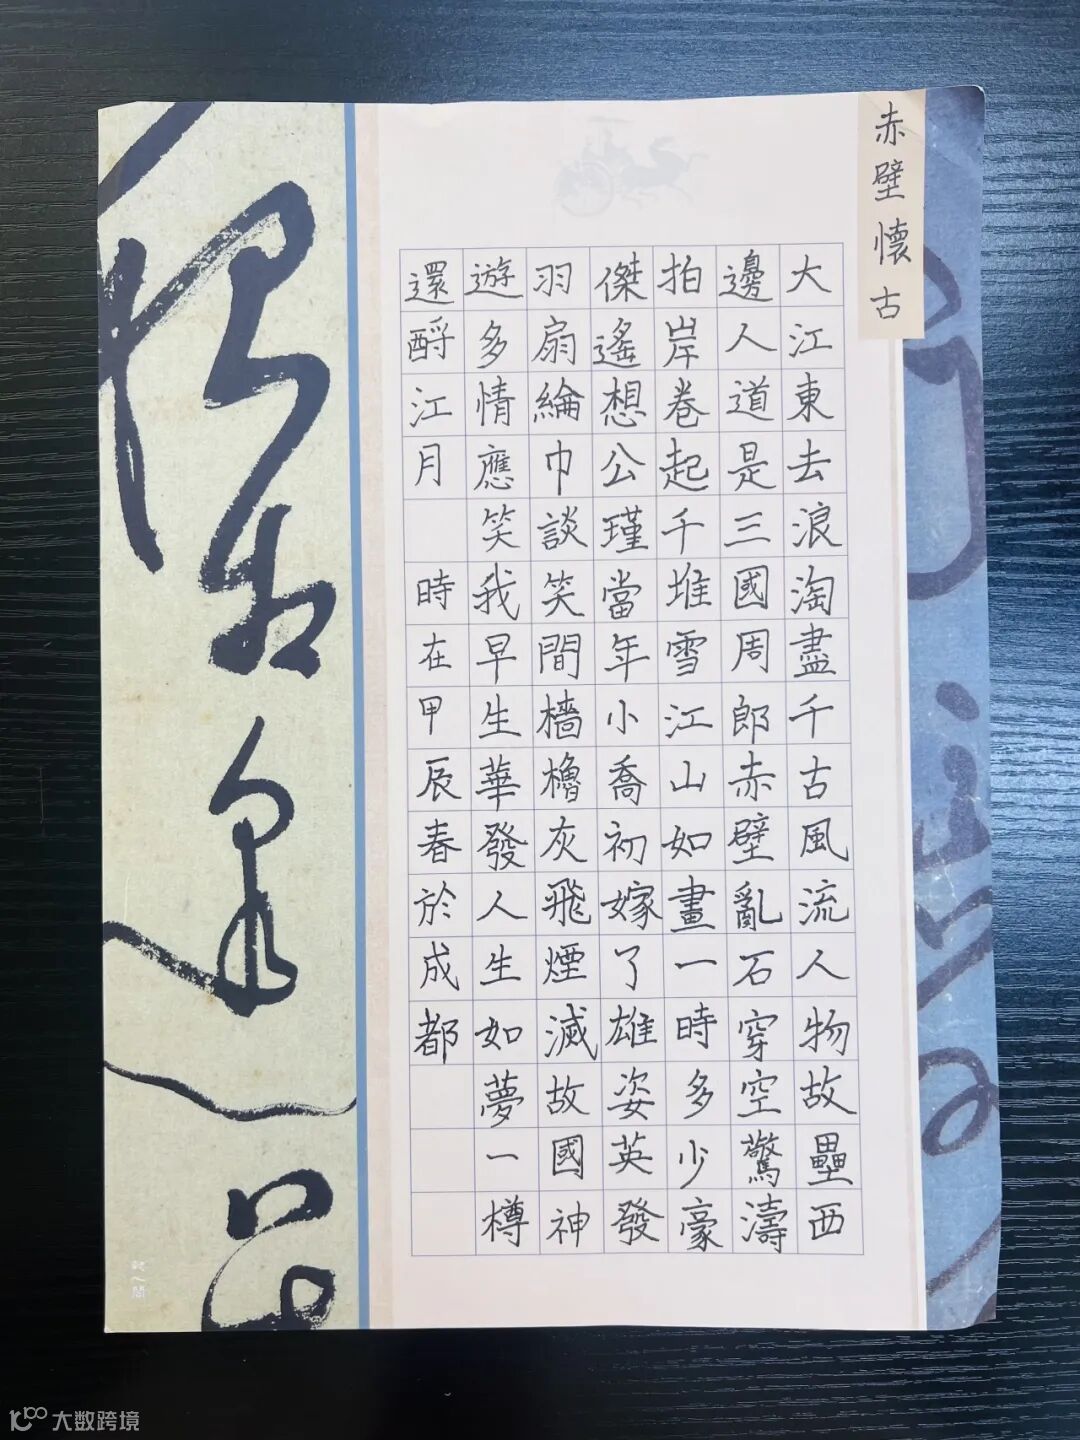 赤壁懷古
大江東去浪淘盡千古風流人物故壘西
邊人道是三國周郎赤壁亂石穿空驚濤
拍岸卷起千堆雪江山如畫一時多少豪
傑遙想公瑾當年小喬初嫁了雄姿英發
羽扇綸巾談笑間檣櫓灰飛煙滅故國神
遊多情應笑我早生華發人生如夢一樽
還酹江月 時在甲辰春於成都
大数跨境